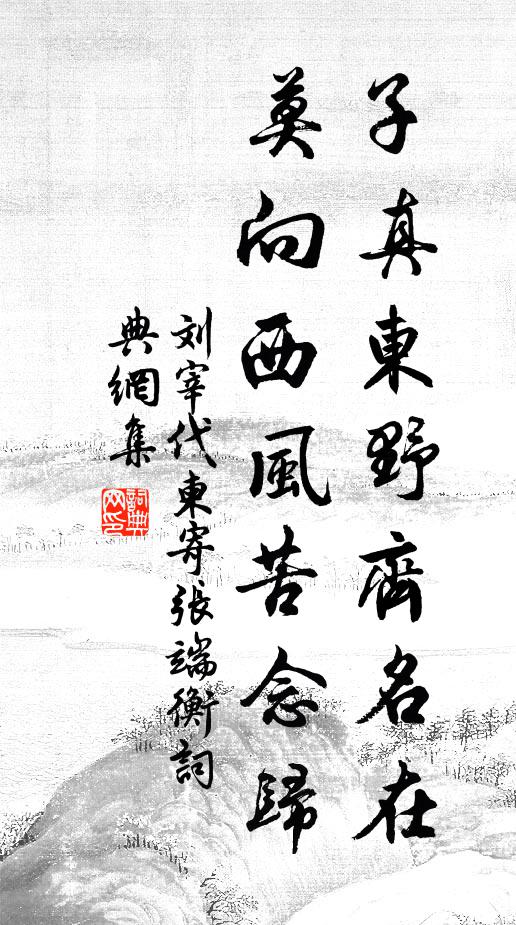 子真東野齊名在
莫向西風苦念歸
刘宰代柬寄張端衡詞
典網集
詞典
网印